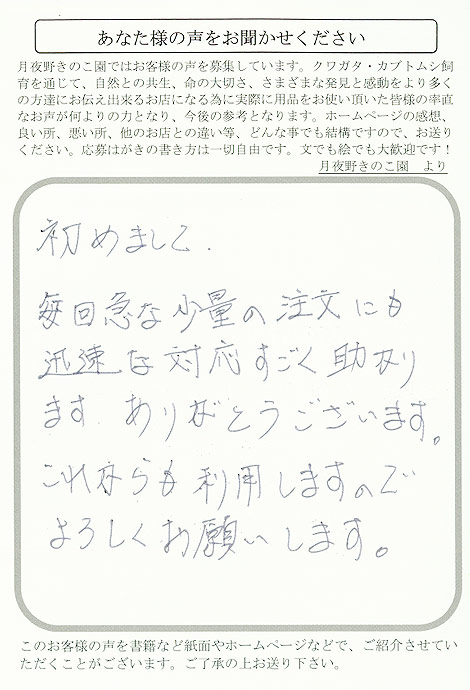 あなた様の声をお聞かせください
月夜野きのこ園ではお客様の声を募集しています。クワガタ・カブトムシ飼
育を通じて、自然との共生、命の大切さ、さまざまな発見と感動をより多く
の方達にお伝え出来るお店になる為に実際に用品をお使い頂いた皆様の率直
なお声が何よりの力となり、今後の参考となります。ホームページの感想、
良い所、悪い所、他のお店との違い等、どんな事でも結構ですので、お送り
ください。応募はがきの書き方は一切自由です。文でも絵でも大歓迎です！
月夜野きのこ園　より
初めまして.
毎回急な少量の注文にも
迅速な対応すごく助かり
ます. ありがとうございます。
これからも利用しますので
よろしくお願いします。
このお客様の声を書籍など紙面やホームページなどで、ご紹介させてい
ただくことがございます。ご了承の上お送り下さい。